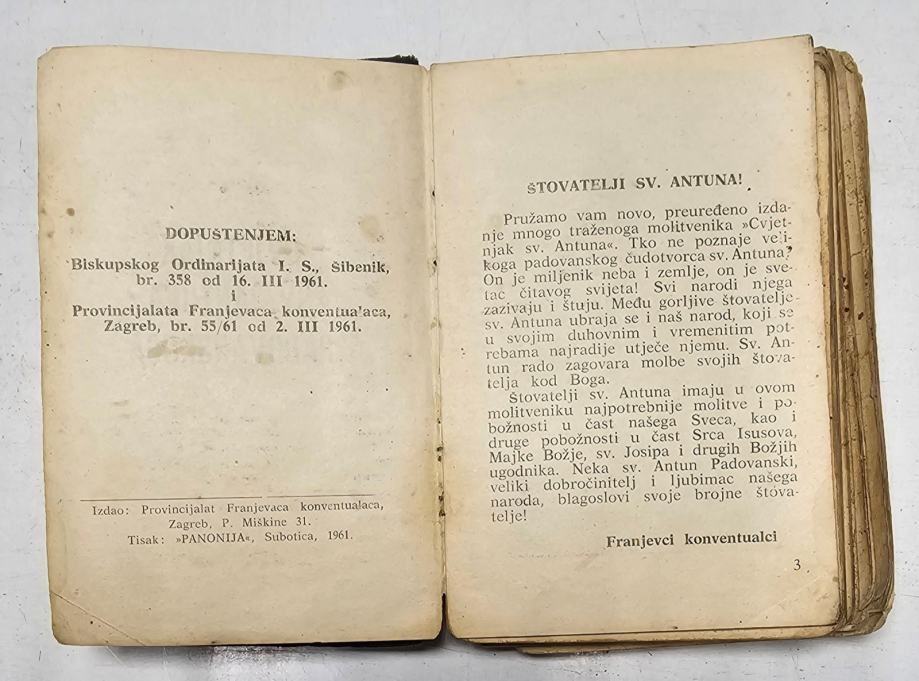 DOPUŠTENJEM:
Biskupskog Ordinarijata I. S., Šibenik,
br. 358 od 16. III 1961.
i
Provincijalata Franjevaca konventualaca,
Zagreb, br. 55/61 od 2. III 1961.
Izdao: Provincijalat Franjevaca konventualaca,
Zagreb, P. Miškine 31.
Tisak: »PANONIJA«, Subotica, 1961.
ŠTOVATELJI SV. ANTUNA!
Pružamo vam novo, preuređeno izda-
nje mnogo traženoga molitvenika »Cvjet-
njak sv. Antuna«. Tko ne poznaje veli-
koga padovanskog čudotvorca sv. Antuna?
On je miljenik neba i zemlje, on je sve-
tac čitavog svijeta! Svi narodi njega
zazivaju i štuju. Među gorljive štovatelje
sv. Antuna ubraja se i naš narod, koji se
u svojim duhovnim i vremenitim pot-
rebama najradije utječe njemu. Sv. An-
tun rado zagovara molbe svojih štova-
telja kod Boga.
Štovatelji sv. Antuna imaju u ovom
molitveniku najpotrebnije molitve i po-
božnosti u čast našega Sveca, kao i
druge pobožnosti u čast Srca Isusova,
Majke Božje, sv. Josipa i drugih Božjih
ugodnika. Neka sv. Antun Padovanski,
veliki dobročinitelj i ljubimac našega
naroda, blagoslovi svoje brojne štova-
telje!
Franjevci konventualci
3